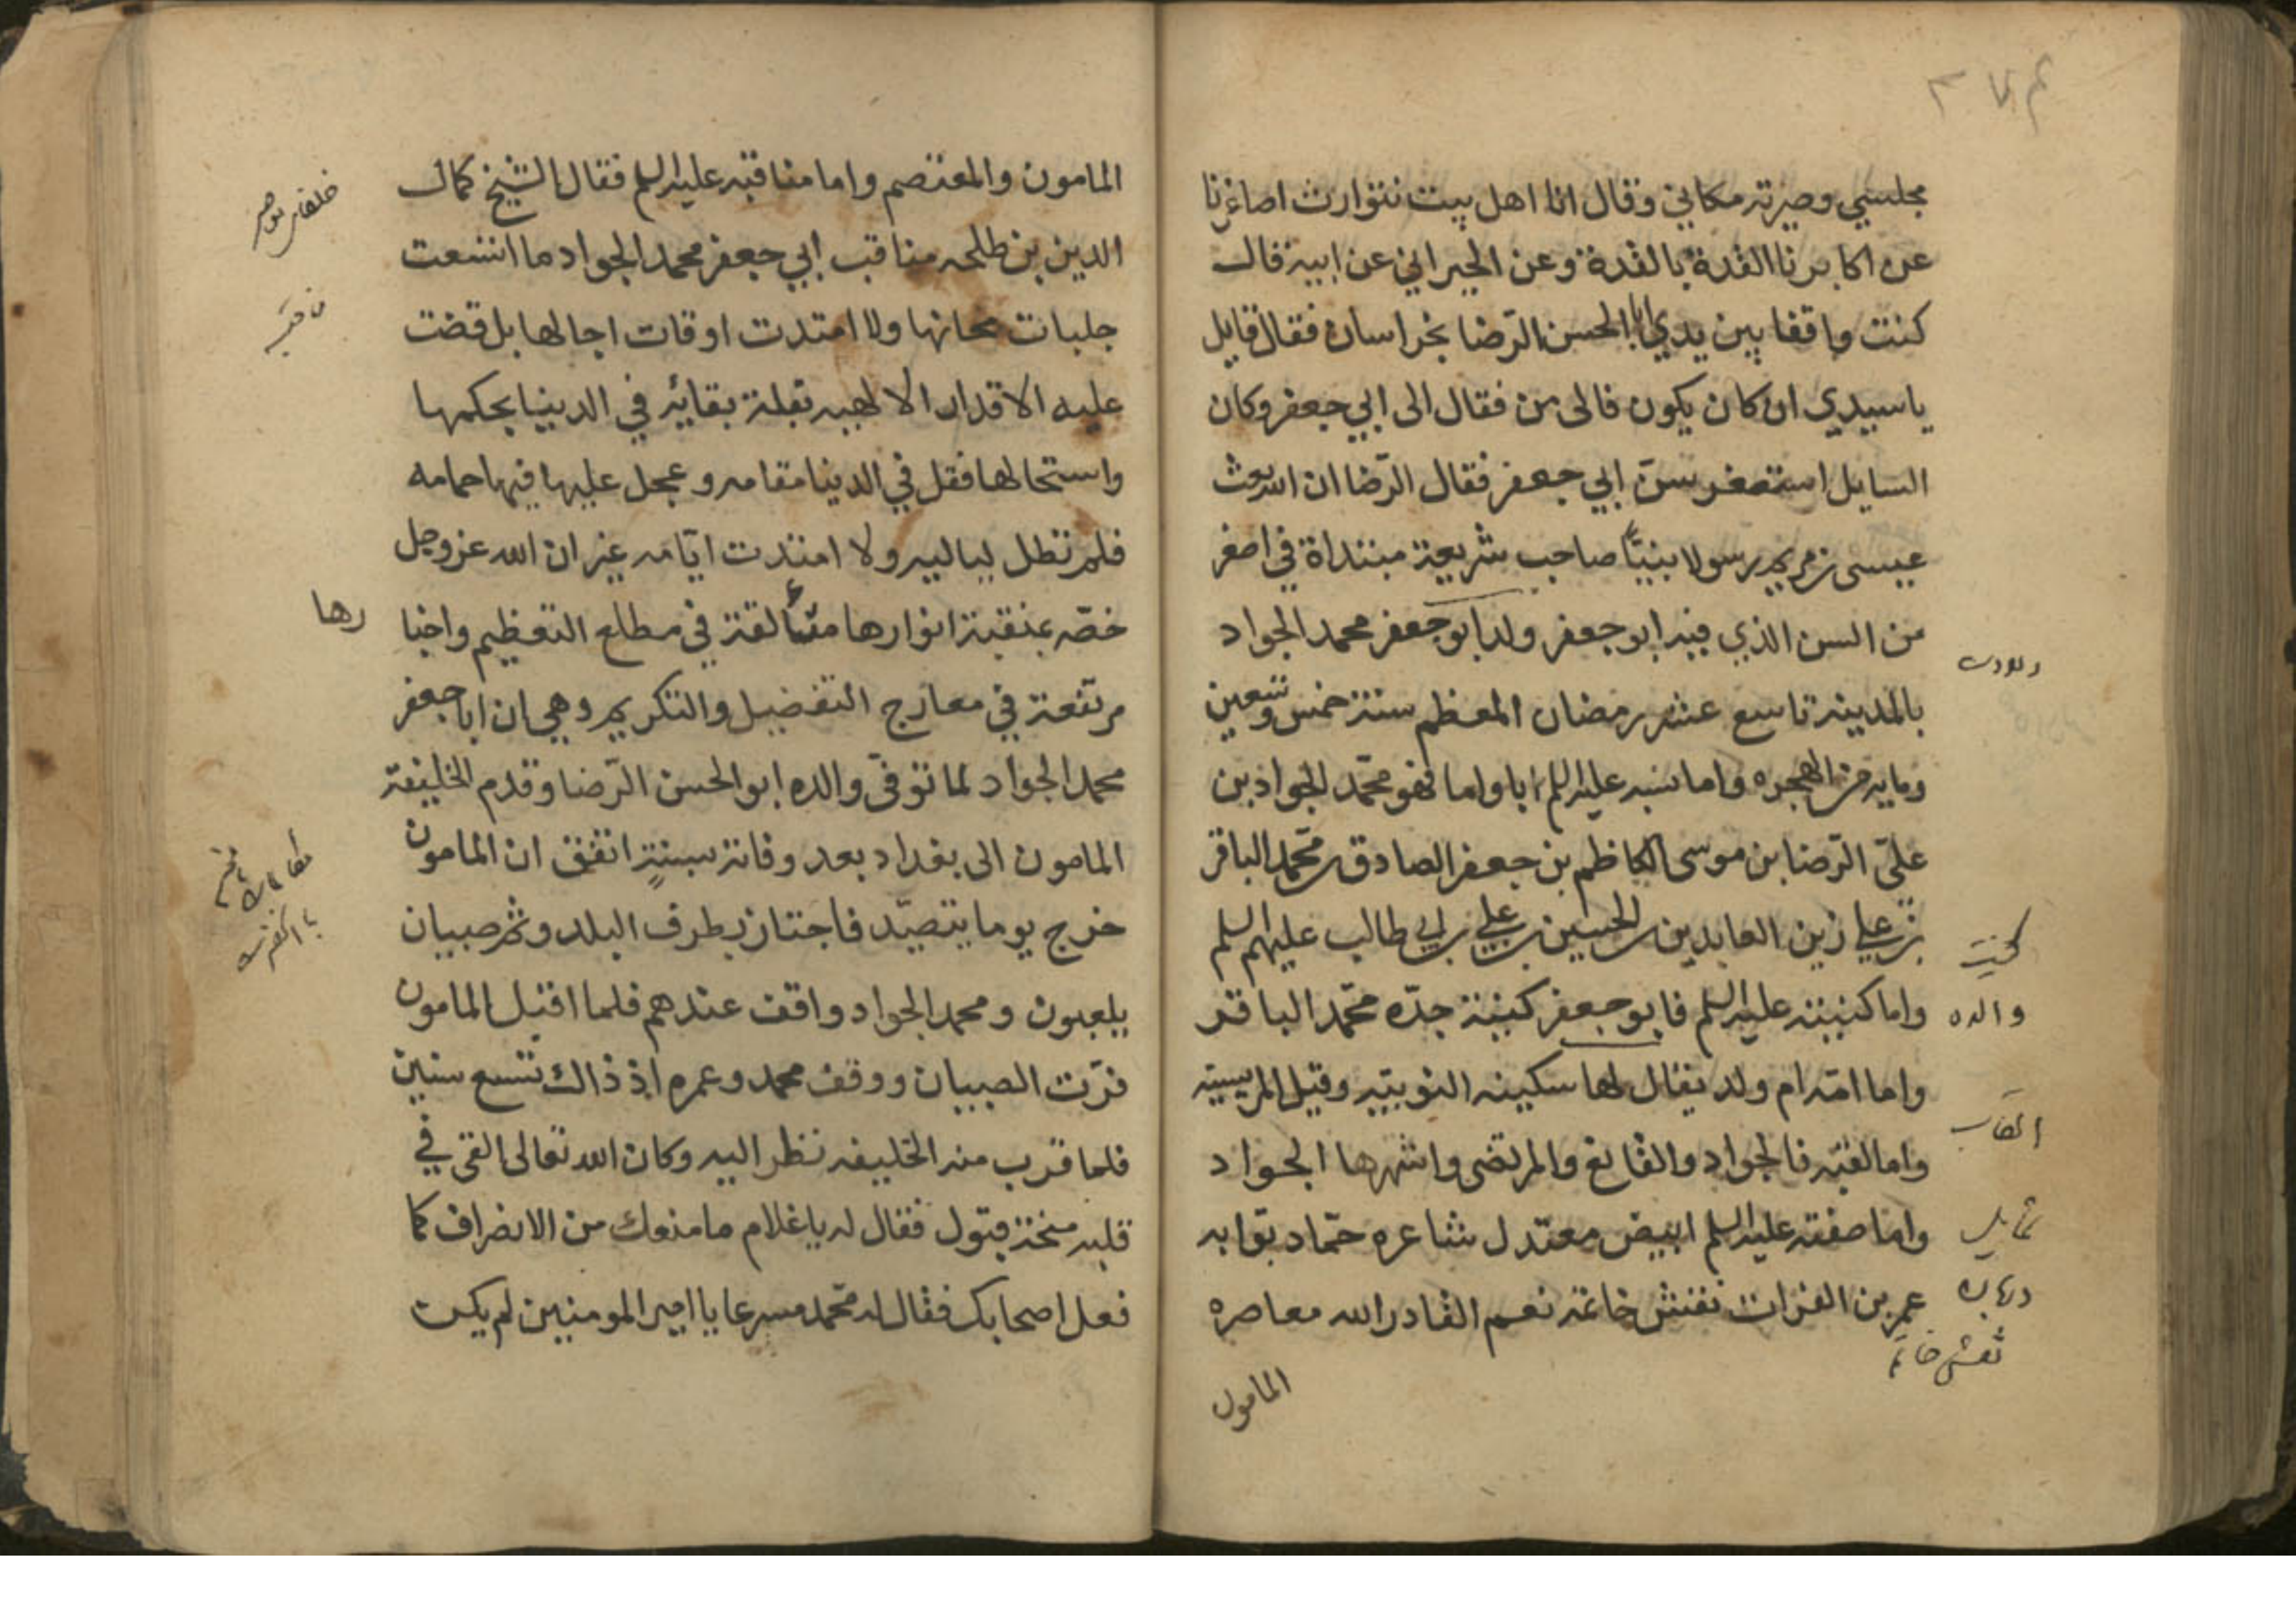 مجلسي وصيرته مكاني وقال انا اهل بيت نتوارث اصاغرنا
عن اكابرنا القدة بالقدة وعن الخيراني عن ابيه قال
كنت واقفا بين يدي ابا الحسن الرّضا بخراسان فقال قايل
ياسيدي ان كان يكون فالى من فقال الى ابي جعفر وكان
السايل استصغر سنّ ابي جعفر فقال الرّضا ان الله بعث
عيسى بن مريم رسولا نبيّاً صاحب شريعة مبتداة في اصغر
من السن الذي فيه ابو جعفر ولد ابو جعفر محمد الجواد
بالمدينة تاسع عشر رمضان المعظم سنة خمس وتسعين
ومايه من الهجره واما نسبه عليه السلم ابا واما فهو محمّد الجواد بن
علىّ الرّضا بن موسى الكاظم بن جعفر الصادق بن محمّد الباقر
بن علي زين العابدين بن الحسين بن علي بن ابي طالب عليهم السلم
واما كنيته عليه السلم فابو جعفر كنية جدّه محمّد الباقر
واما امّه ام ولد يقال لها سكينه النوبيّه وقيل المريسيّه
واما لقبه فالجواد والقانع والمرتضى واشهرها الجواد
واما صفته عليه السلم ابيض معتدل شاعره حمّاد بوّابه
عمر بن الفرات نقش خاتمه نعم القادر الله معاصره
المامون
ولادت
كنيت
والده
القاب
شمايل
دربان
نقش خاتم
المامون والمعتصم واما مناقبه عليه السلم فقال الشيخ كمال
الدين بن طلحه مناقب ابي جعفر محمد الجواد ما اتسعت
جلبات مجانها ولا امتدت اوقات اجالها بل قضت
عليه الاقدار الالهيه بقلة بقائه في الدينا بحكمها
واستحالها فقل في الدينا مقامه وعجل عليها فيها حمامه
فلم تطل لياليه ولا امتدت ايّامه غير ان الله عز وجل
خصّه بمنقبة انوارها متألقة في مطلع التعظيم واخبا
رها
مرتفعة في معارج التفضيل والتكريم وهي ان ابا جعفر
محمد الجواد لما توفى والده ابو الحسن الرّضا وقدم الخليفة
المامون الى بغداد بعد وفاته بسنةٍ اتفق ان المامون
خرج يوما يتصيّد فاجتاز بطرف البلد وثم صبيان
يلعبون ومحمد الجواد واقف عندهم فلما اقبل المامون
فرّت الصبيان ووقف محمد وعمره اذ ذاك تسع سنين
فلما قرب منه الخليفه نظر اليه وكان الله تعالى القى في
قلبه مسحة قبول فقال له يا غلام ما منعك من الانصراف كما
فعل اصحابك فقال له محمّد مسرعا يا امير المومنين لم يكن
مناقب